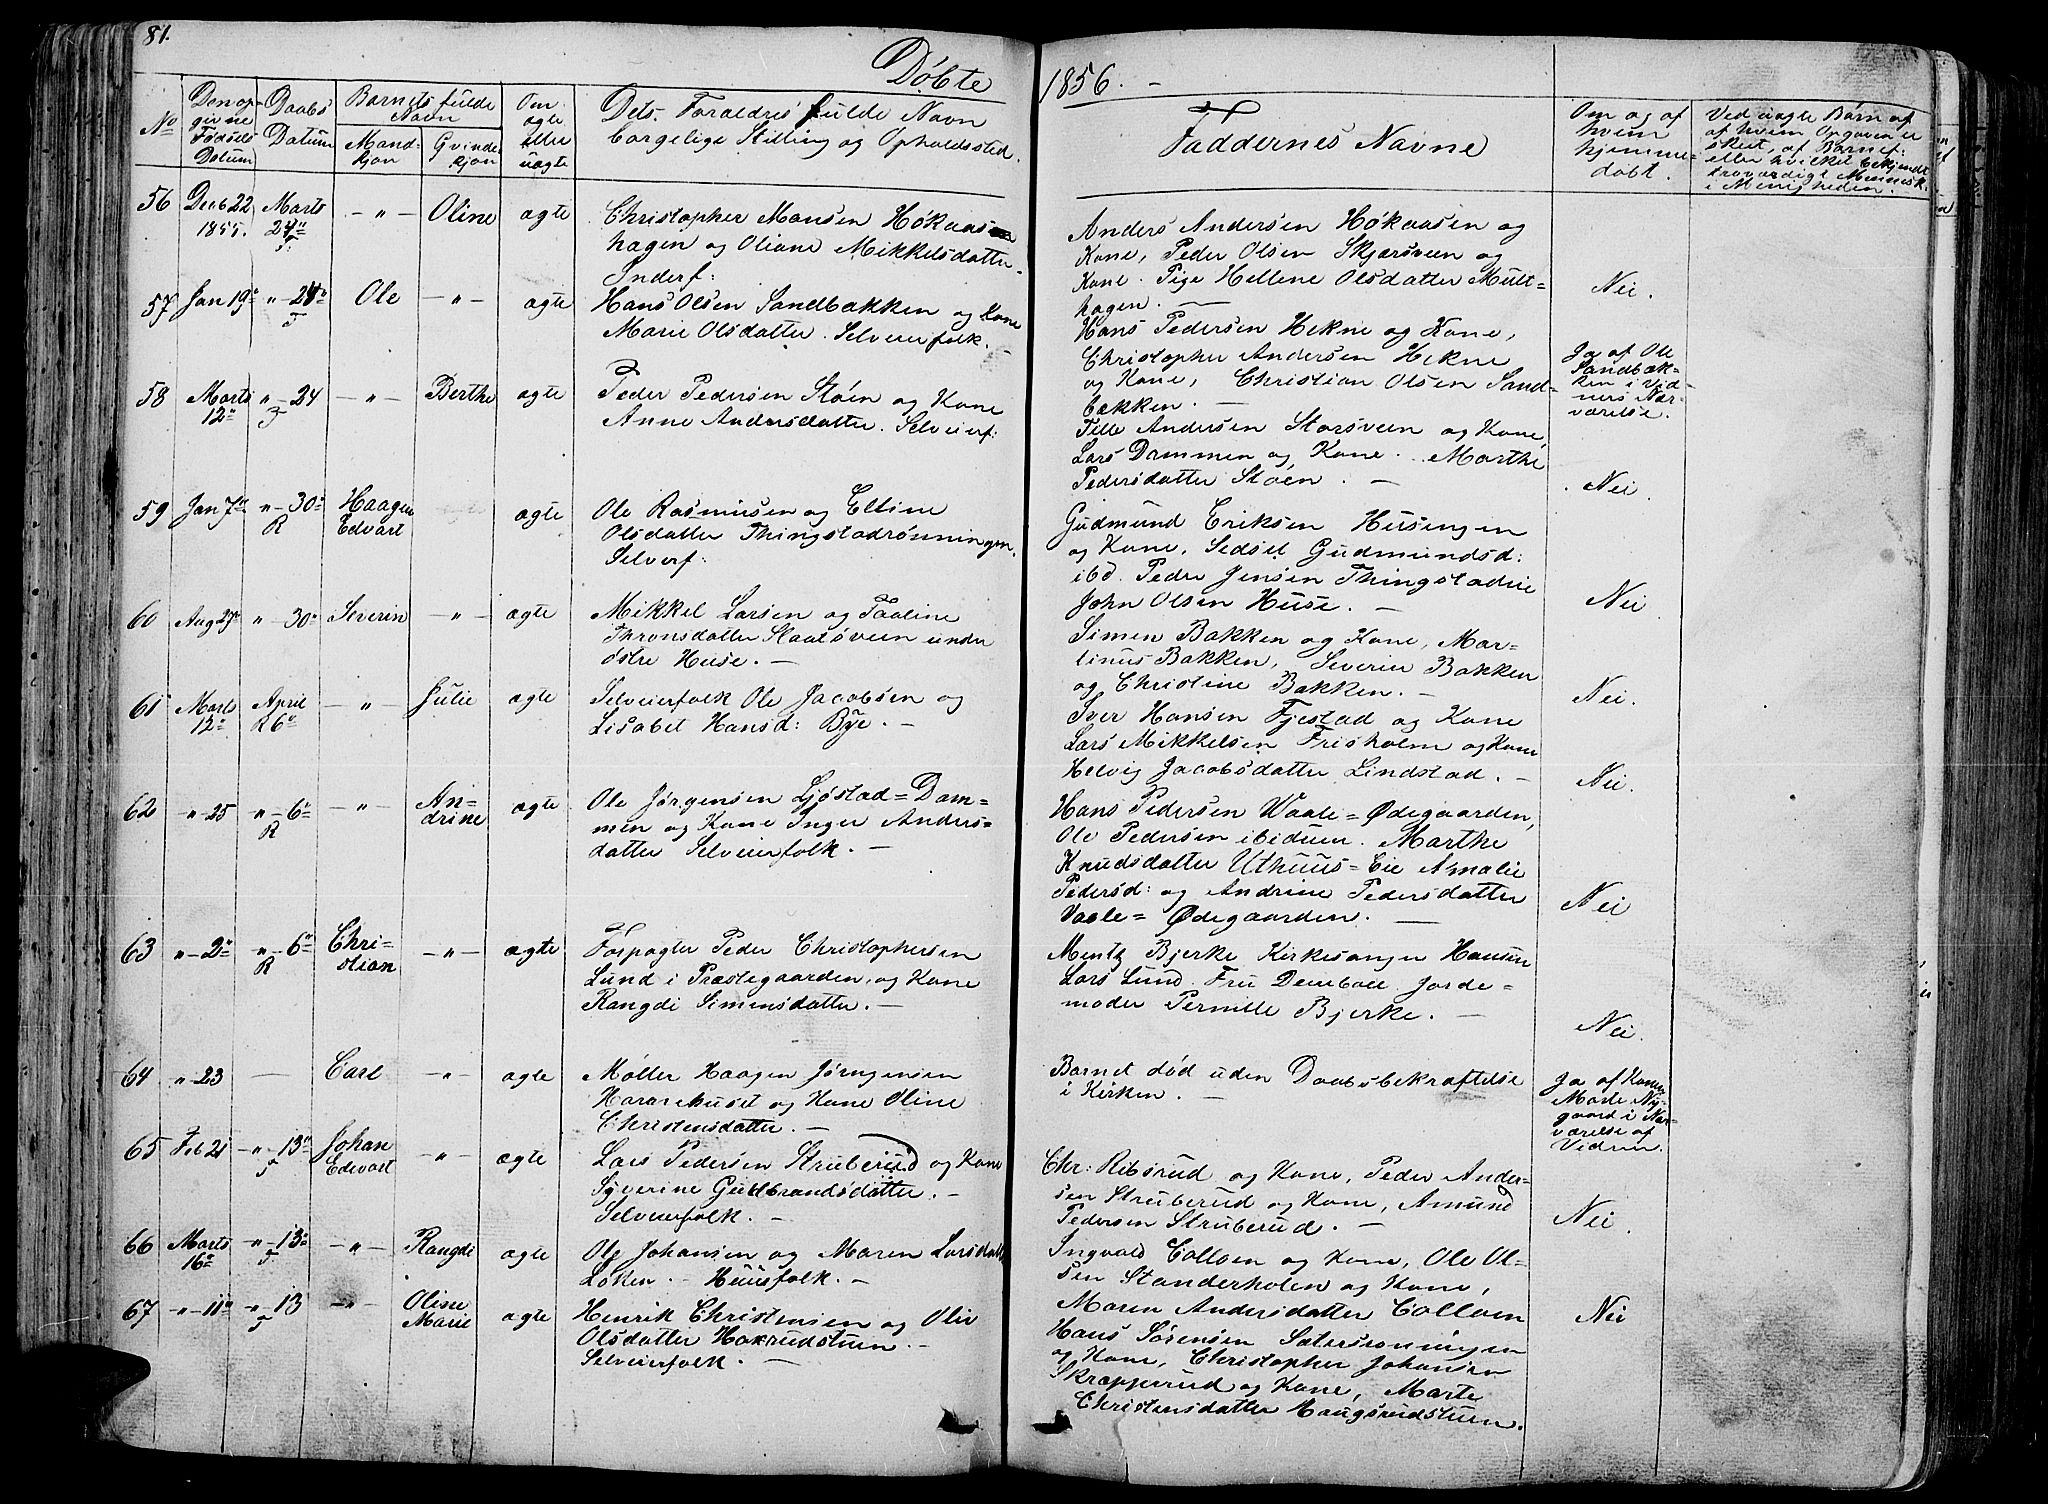 81.
Døbte
1856. -
No
Den op-
givne
Fødsels
Datum
Daabs
Datum
Barnets fulde
Navn
Mand-
kjøn
Qvinde
kjøn
Om
ægte
eller
uægte
Dets Foraldres fulde Navn
borgelige Stilling og Opholdssted.
Faddernes Navne
Om og af
hvem
hjemme-
døbt.
Ved uægte Børn af
af hvem Opgaven er
skeet, af Barnef.
eller hvilket bekjendt
troværdigt Mennesk.
i Menigheden.
56 Decb 22 1855. Marts 24de F. - " - Oline ægte
Christopher Monsen Høkaas
hagen og Oliane Mikkelsdatter
Inderf:
Anders Andersen Høkaasen og
Kone, Peder Olsen Skjærsveen og
Kone. Pige Hellene Olsdatter Mült=
hagen. -
Nei.
57 Jan 19de " - 24de F Ole - " - ægte
Hans Olsen Sandbakken og Kone
Marie Olsdatter. Selveierfolk. -
Hans Pedersen Hekne og Kone,
Christopher Andersen Hekne
og Kone, Christian Olsen Sand-
bækken. -
Ja af Ole
Sandbæk-
ken i vid-
ners Nær-
værelse.
58 Marts 12te " - 24 F - " - Berthe ægte
Peder Pedersen Støen og Kone
Anne Andersdatter. Selveierf:
Tille Andersen Storsveen og Kone,
Lars Dammen og Kone. Marthe
Pedersdatter Støen. -
Nei.
59 Jan 7de " - 30de R Haagen Edvart ægte
Ole Rasmusen og Eltine
Olsdatter Thingstadrønningen.
Selverf:
Gudmund Eriksen Husengen
og Kone, Sedsel Gudmundsd:
ibd. Peder Jensen Thingstadeie
John Olsen Huse. -
Nei
60 Aug 27de " - 30de Severin - " - ægte
Mikkel Larsen og Paaline
Thronsdatter Staalsveen under
østre Huse. -
Simen Bakken og Kone, Mar-
tinus Bakken, Severin Bakken
og Christine Bakken. -
Nei.
61 Marts 12te April R 6te - " - Julie ægte
Selveierfolk Ole Jacobsen og
Lisabet Hansd: Bye. -
Iver Hansen Fjestad og Kone
Lars Mikkelsen Frisholm og Kone
Helvig Jacobsdatter Lindstad. -
Nei.
62 " - 25 " - 6te R - " - An-
drine ægte
Ole Jørgensen Ljøstad=Dam=
men og Kone Inger Anders=
datter Selveierfolk. -
Hans Pedersen Waale=Ødegaarden,
Ole Pedersen ibidem. Marthe
Knudsdatter Uthuus=Eie Amalie
Pedersd: og Andrine Pedersdatter
Vaale= Ødegaarden. -
Nei
63 " - 2de " - 6te R Chri-
stian - " - ægte
Forpagter Peder Christophersen
Lund i Præstegaarden, og Kone
Rangdi Simensdatter. -
Mentz Bjerke Kirkesanger Hansen
Lars Lund. Fru Deurboll. Jorde-
moder Pernille Bjerke. -
Nei.
64 " 23 - Carl - " - ægte
Møller Haagen Jørngensen
Hararehuset og Kone Oline
Christensdatter. -
Barnet død uden Daabsbekræftelse
i Kirken. -
Ja af Konen
Marte Ny-
gaard i Nær-
værelse af
Vidner.
65 Feb 21 " - 13de F Johan
Edvart - " - ægte
Lars Pedersen Struberud og Kone
Syverine Guldbrandsdatter. -
Selveierfolk. -
Chr: Ribsrud og Kone, Peder Ander-
sen Struberud og Kone, Amund
Pedersen Struberud. -
Nei.
66 Marts 16de " - 13de F - " - Rangdi ægte
Ole Johansen og Maren Larsdatt
Løken. - Huusfolk. -
Ingvald Colloen og Kone, Ole Ol-
sen Standerholen og Kone,
Maren Andersdatter Colloen
Nei
67 " - 11te " - 13 F - " - Oline
Marie ægte
Henrik Christensen og Oliv
Olsdatter Hoxrudstuen. -
Selveierfolk. -
Hans Sørensen Sætersrønningen
og Kone, Christopher Johansen
Skrapperud og Kone, Marte
Christensdatter Haugsrudstuen.